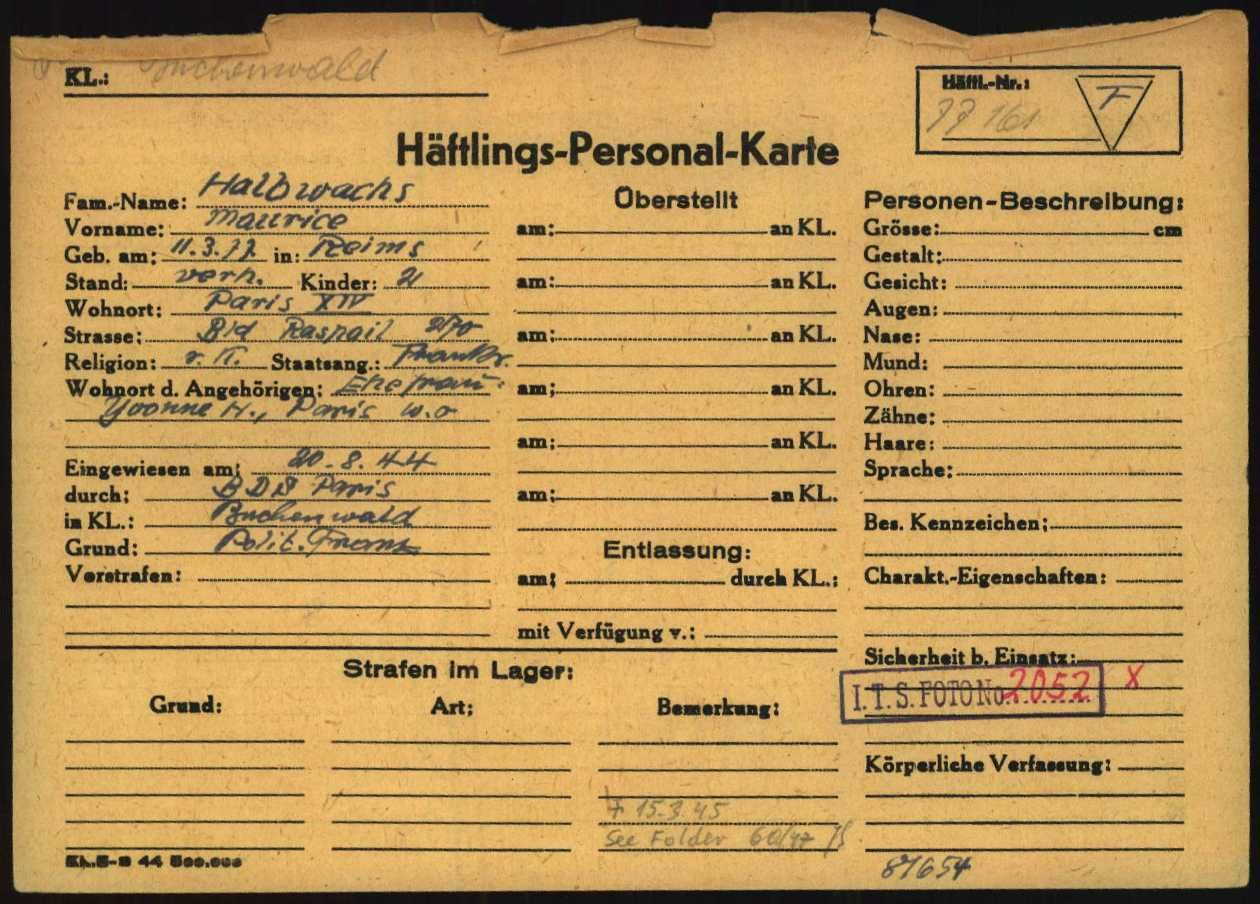 KL.: Buchenwald
Häftl.-Nr.:
77161
F
Häftlings-Personal-Karte
Fam.-Name: Halbwachs
Vorname: Maurice
Geb. am: 11.3.77 in: Reims
Stand: verh. Kinder: 2
Wohnort: Paris XIV
Strasse: Bld Raspail 270
Religion: r. K. Staatsang.: Frankr.
Wohnort d. Angehörigen: Ehefrau:
Yvonne H., Paris w.o
Eingewiesen am: 20.8.44
durch: BDS Paris
in KL.: Buchenwald
Grund: Polit. Franz
Vorstrafen:
Überstellt
am: an KL.
am: an KL.
am: an KL.
am: an KL.
am: an KL.
am: an KL.
Entlassung:
am: durch KL.:
mit Verfügung v.:
Personen-Beschreibung:
Grösse: cm
Gestalt:
Gesicht:
Augen:
Nase:
Mund:
Ohren:
Zähne:
Haare:
Sprache:
Bes. Kennzeichen:
Charakt.-Eigenschaften:
Sicherheit b. Einsatz:
I.T.S. FOTO No. 2052 x
Körperliche Verfassung:
Strafen im Lager:
Grund: Art: Bemerkung:
† 15.3.45
See Folder 60/47
KL.5-8 44 500.000
87654